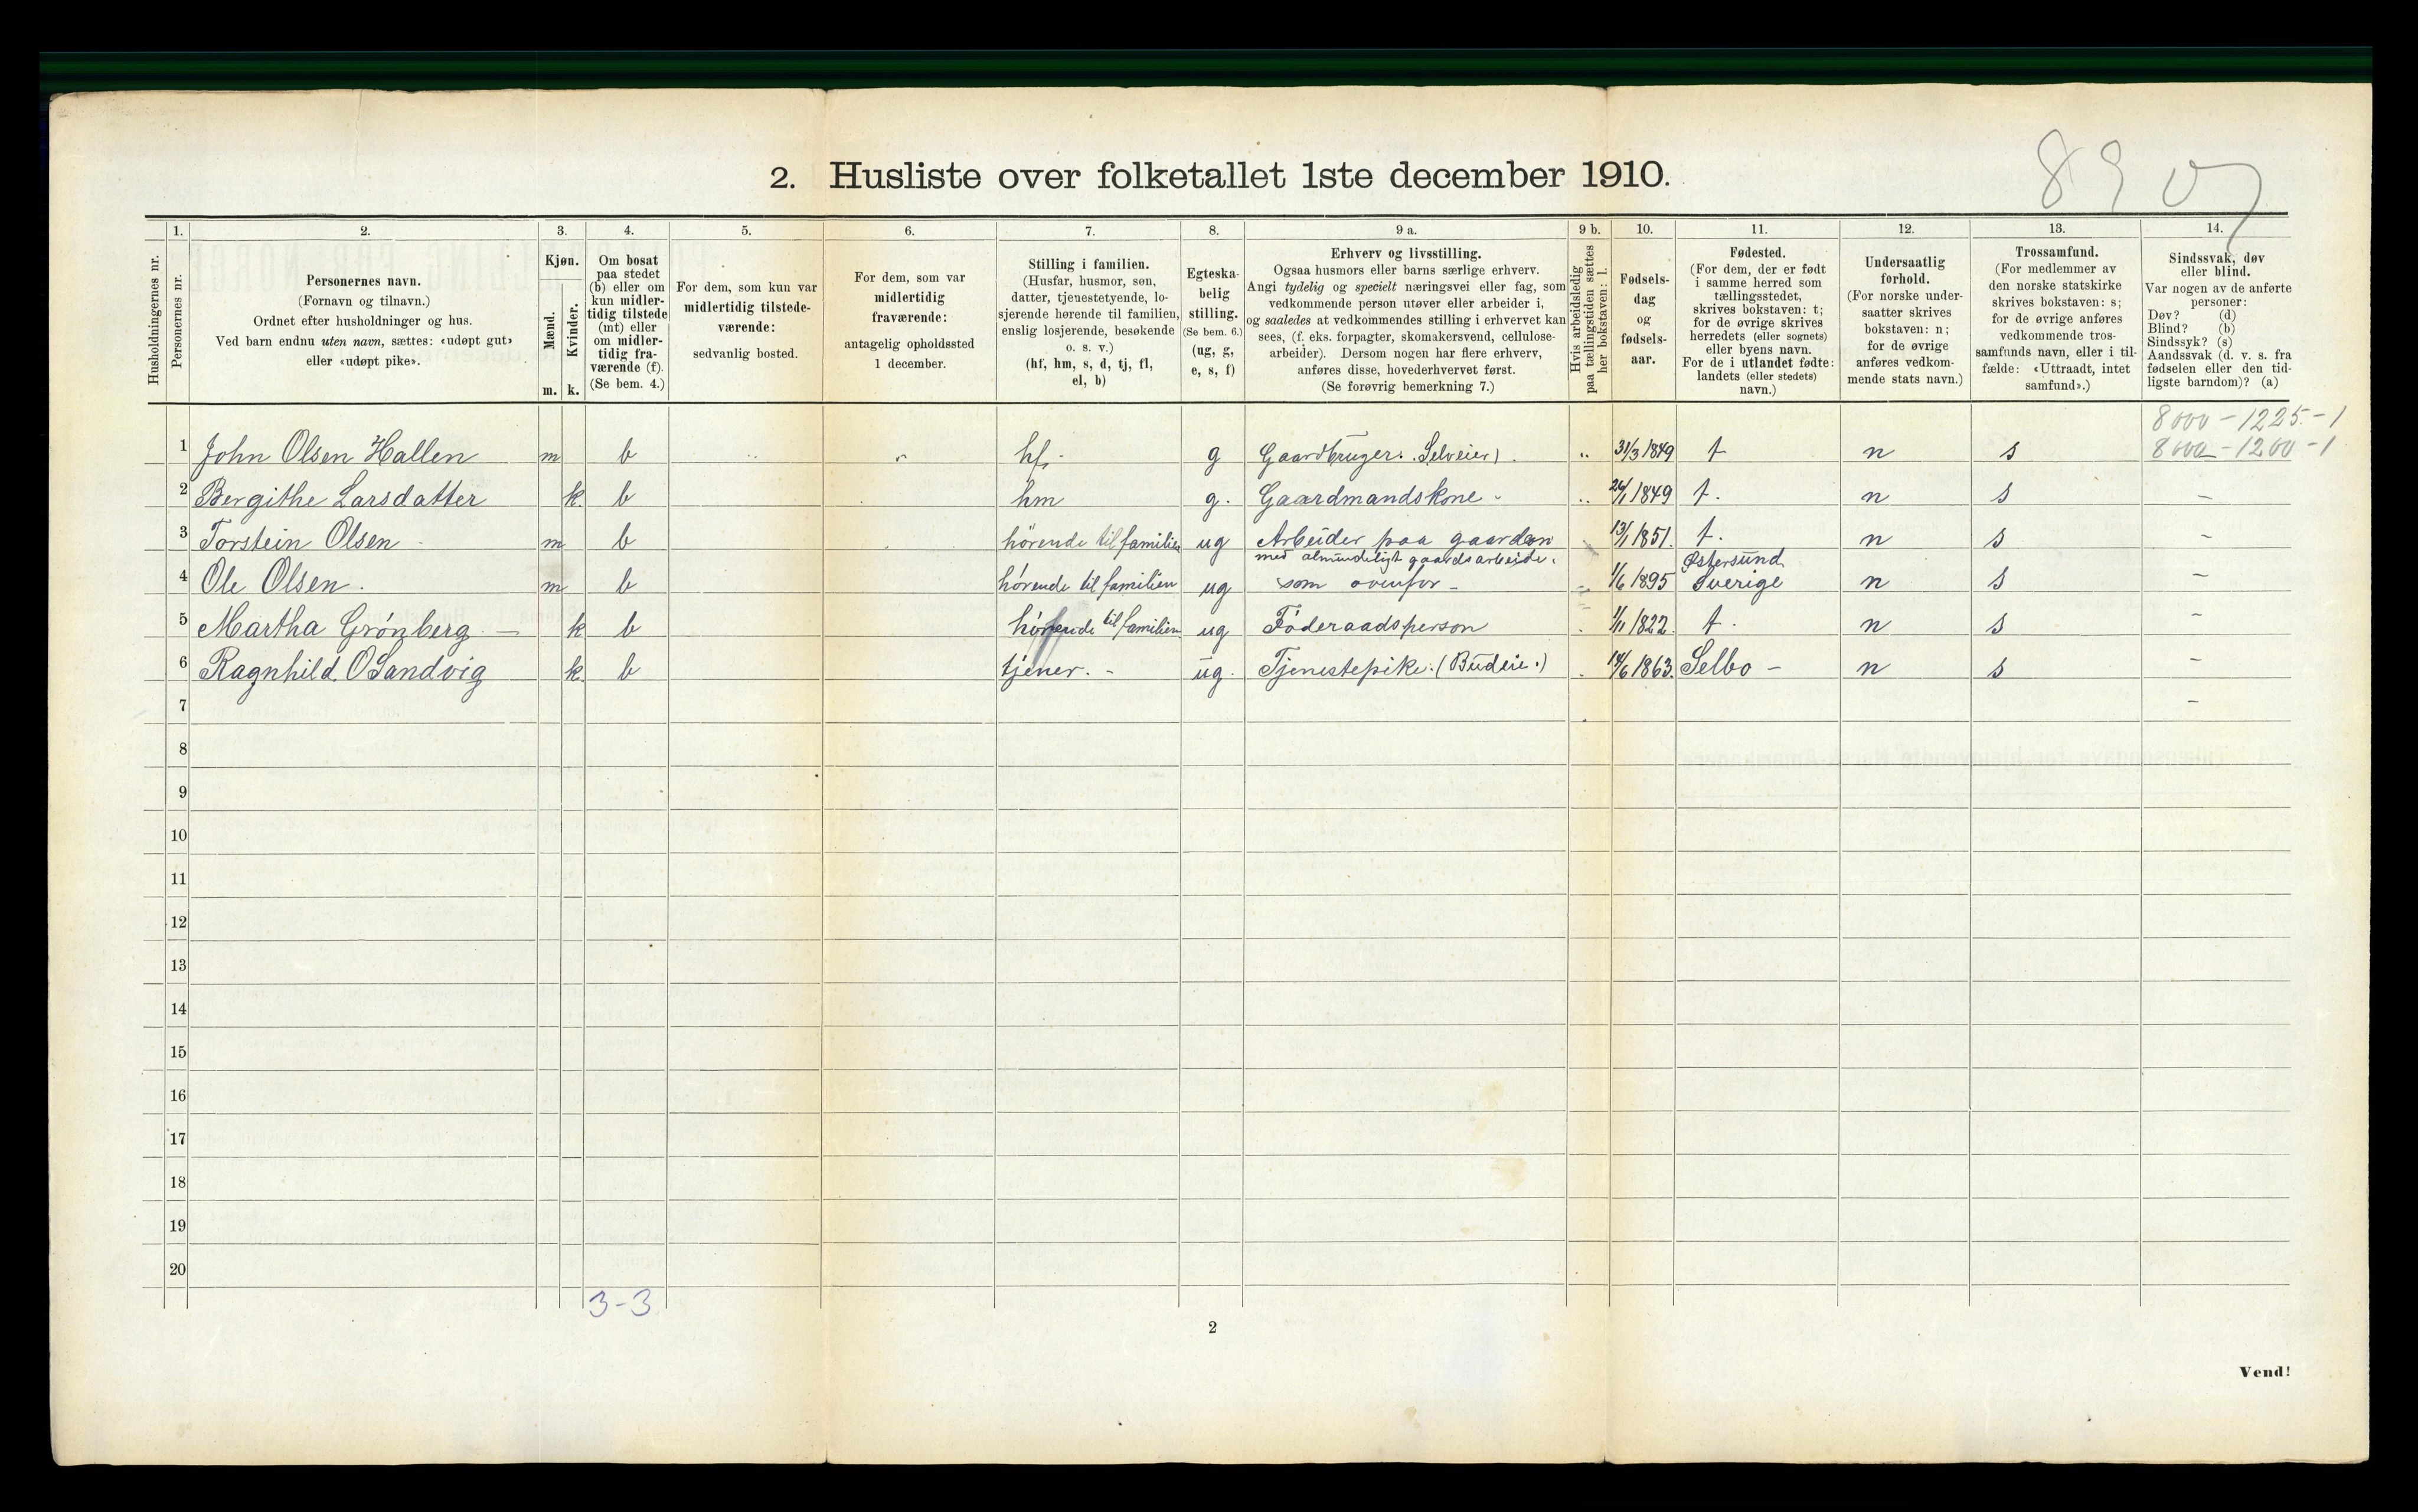 2. Husliste over folketallet 1ste december 1910.
1. 2. 3. 4. 5. 6. 7. 8. 9 a. 9 b. 10. 11. 12. 13. 14.
Husholdningernes nr.
Personernes nr.
Personernes navn.
(Fornavn og tilnavn.)
Ordnet efter husholdninger og hus.
Ved barn endnu uten navn, sættes: «udøpt gut»
eller «udøpt pike».
Kjøn.
Mænd.
Kvinder.
m. k.
Om bosat
paa stedet
(b) eller om
kun midler-
tidig tilstede
(mt) eller
om midler-
tidig fra-
værende (f).
(Se bem. 4.)
For dem, som kun var
midlertidig tilstede-
værende:
sedvanlig bosted.
For dem, som var
midlertidig
fraværende:
antagelig opholdssted
1 december.
Stilling i familien.
(Husfar, husmor, søn,
datter, tjenestetyende, lo-
sjerende hørende til familien,
enslig losjerende, besøkende
o. s. v.)
(hf, hm, s, d, tj, fl,
el, b)
Egteska-
belig
stilling.
(Se bem. 6.)
(ug, g,
e, s, f)
Erhverv og livsstilling.
Ogsaa husmors eller barns særlige erhverv.
Angi tydelig og specielt næringsvei eller fag, som
vedkommende person utøver eller arbeider i,
og saaledes at vedkommendes stilling i erhvervet kan
sees, (f. eks. forpagter, skomakersvend, cellulose-
arbeider). Dersom nogen har flere erhverv,
anføres disse, hovederhvervet først.
(Se forøvrig bemerkning 7.)
Hvis arbeidsledig
paa tællingstiden sættes
her bokstaven: l.
Fødsels-
dag
og
fødsels-
aar.
Fødested.
(For dem, der er født
i samme herred som
tællingsstedet,
skrives bokstaven: t;
for de øvrige skrives
herredets (eller sognets)
eller byens navn.
For de i utlandet fødte:
landets (eller stedets)
navn.)
Undersaatlig
forhold.
(For norske under-
saatter skrives
bokstaven: n;
for de øvrige
anføres vedkom-
mende stats navn.)
Trossamfund.
(For medlemmer av
den norske statskirke
skrives bokstaven: s;
for de øvrige anføres
vedkommende tros-
samfunds navn, eller i til-
fælde: «Uttraadt, intet
samfund».)
Sindssvak, døv
eller blind.
Var nogen av de anførte
personer:
Døv? (d)
Blind? (b)
Sindssyk? (s)
Aandssvak (d. v. s. fra
fødselen eller den tid-
ligste barndom)? (a)
8000 - 1225 - 1
1 John Olsen Hallen m b hf. g Gaardbruger. Selveier) 31/3 1849 t n s 8000 - 1200 - 1
2 Bergithe Larsdatter k. b hm g. Gaardmandskone - 26/1 1849 t. n s -
3 Torstein Olsen m b hørende til familien ug Arbeider paa gaarden 13/1 1851. t. n s -
med almindeligt gaardsarbeide. Østersund
4 Ole Olsen. m b hørende til familien ug som ovenfor - 1/6 1895 Sverige n s -
5 Martha Grönberg - k b hörende til familien ug Föderaadsperson 1/11 1822. t. n s -
6 Ragnhild O Sandvig k. b tjener. - ug. Tjenestepike. (Budeie.) 14/6 1863. Selbo - n s -
7 -
8
9
10
11
12
13
14
15
16
17
18
19
20
3-3
2
Vend!